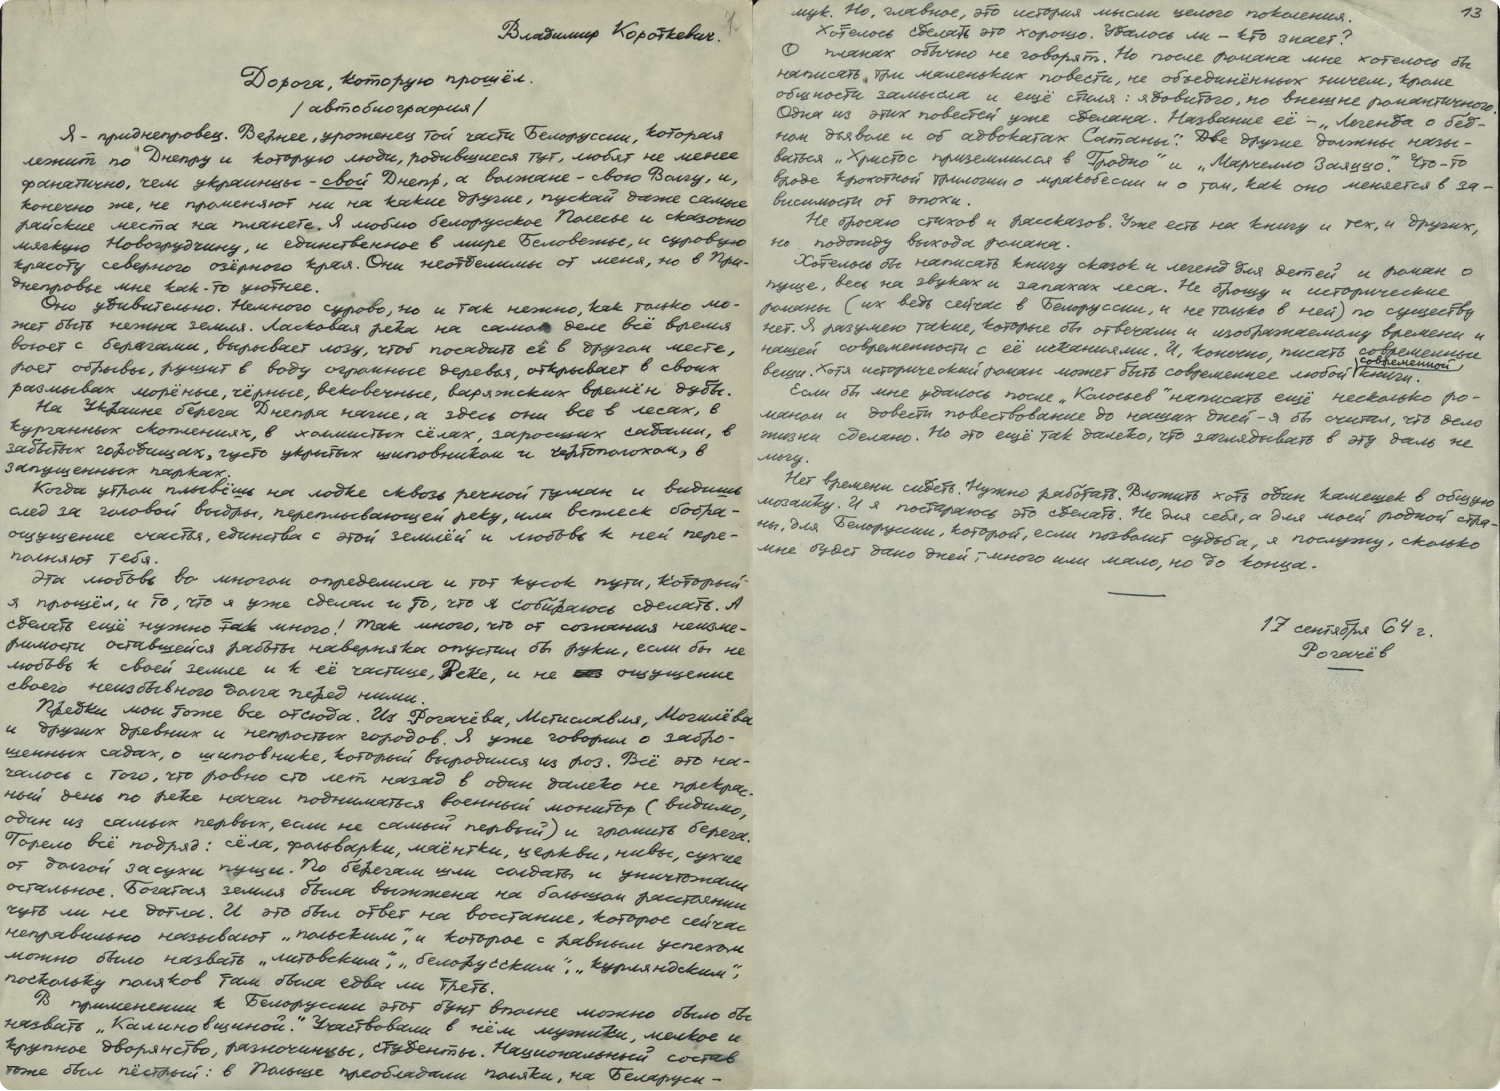 1
Владимир Короткевич.
Дорога, которую прошёл.
/автобиография/
Я - приднепровец. Вернее, уроженец той части Белоруссии, которая
лежит по Днепру и которую люди, родившиеся тут, любят не менее
фанатично, чем украинцы - свой Днепр, а волжане - свою Волгу, и,
конечно же, не променяют ни на какие другие, пускай даже самые
райские места на планете. Я люблю белорусское Полесье и сказочно
мягкую Новогрудчину, и единственное в мире Беловежье, и суровую
красоту северного озёрного края. Они неотделимы от меня, но в При-
днепровье мне как-то уютнее.
Оно удивительно. Немного сурово, но и так нежно, как только мо-
жет быть нежна земля. Ласковая река на самом деле всё время
воюет с берегами, вырывает лозу, чтоб посадить её в другом месте,
роет обрывы, рушит в воду огромные деревья, открывает в своих
размывах морёные, чёрные, вековечные, варяжских времён дубы.
На Украине берега Днепра нагие, а здесь они все в лесах, в
курганных скоплениях, в холмистых сёлах, заросших садами, в
забытых городищах, густо укрытых шиповником и чертополохом, в
запущенных парках.
Когда утром плывёшь на лодке сквозь речной туман и видишь
след за головой выдры, переплывающей реку, или всплеск бобра -
ощущение счастья, единства с этой землёй и любовь к ней пере-
полняют тебя.
Эта любовь во многом определила и тот кусок пути, который
я прошёл, и то, что я уже сделал и то, что я собираюсь сделать. А
сделать ещё нужно так много! Так много, что от сознания неизме-
римости оставшейся работы наверняка опустил бы руки, если бы не
любовь к своей земле и к её частице, Реке, и не ощущение
своего неизбывного долга перед ними.
Предки мои тоже все отсюда. Из Рогачёва, Мстиславля, Могилёва
и других древних и непростых городов. Я уже говорил о забро-
шенных садах, о шиповнике, который выродился из роз. Всё это на-
чалось с того, что ровно сто лет назад в один далеко не прекрас-
ный день по реке начал подниматься военный монитор (видимо,
один из самых первых, если не самый первый) и громить берега.
Горело всё подряд: сёла, фольварки, маёнтки, церкви, нивы, сухие
от долгой засухи пущи. По берегам шли солдаты и уничтожали
остальное. Богатая земля была выжжена на большом расстоянии
чуть ли не дотла. И это был ответ на восстание, которое сейчас
неправильно называют „польским", и которое с равным успехом
можно было назвать „литовским", „белорусским", „курляндским",
поскольку поляков там была едва ли треть.
В применении к Белоруссии этот бунт вполне можно было бы
назвать „Калиновщиной." Участвовали в нём мужики, мелкое и
крупное дворянство, разночинцы, студенты. Национальный состав
тоже был пёстрый: в Польше преобладали поляки, на Беларуси -
13
мук. Но, главное, это история мысли целого поколения.
Хотелось сделать это хорошо. Удалось ли - кто знает?
О планах обычно не говорят. Но после романа мне хотелось бы
написать три маленьких повести, не объединённых ничем, кроме
общности замысла и ещё стиля: ядовитого, но внешне романтичного.
Одна из этих повестей уже сделана. Название её - „Легенда о бед-
ном дьяволе и об адвокатах Сатаны". Две другие должны назы-
ваться „Христос приземлился в Гродно" и „Марчелло Заяццо". Что-то
вроде крохотной трилогии о мракобесии и о том, как оно меняется в за-
висимости от эпохи.
Не бросаю стихов и рассказов. Уже есть на книгу и тех, и других,
но подожду выхода романа.
Хотелось бы написать книгу сказок и легенд для детей и роман о
пуще, весь на звуках и запахах леса. Не брошу и исторические
романы (их ведь сейчас в Белоруссии, и не только в ней) по существу
нет. Я разумею такие, которые бы отвечали и изображаемому времени и
нашей современности с её исканиями. И, конечно, писать современные
вещи. Хотя исторический роман может быть современнее любой современной книги.
Если бы мне удалось после „Колосьев" написать ещё несколько ро-
манов и довести повествование до наших дней - я бы считал, что дело
жизни сделано. Но это ещё так далеко, что заглядывать в эту даль не
могу.
Нет времени сидеть. Нужно работать. Вложить хоть один камешек в общую
мозаику. И я постараюсь это сделать. Не для себя, а для моей родной стра-
ны, для Белоруссии, которой, если позволит судьба, я послужу, сколько
мне будет дано дней, - много или мало, но до конца.
17 сентября 64 г.
Рогачёв